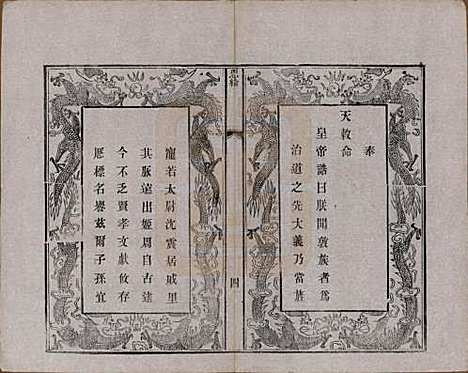 奉
天敕命
皇帝誥曰朕聞敦族者爲
治道之先大義乃當族
恩綸
四
寵若太尉沈雲居戚里
其脈遠出姬周自古達
今不乏賢孝文獻攸存
歷標名譽茲爾子孫宜